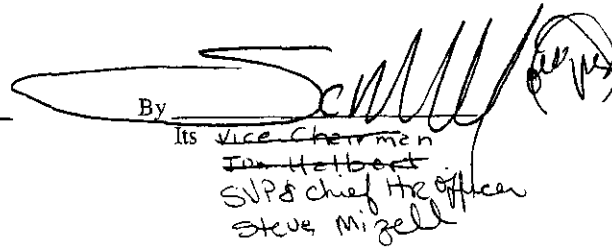 By
Its Vice Chairman
Jon Halbert
SVP & Chief HR officer
Steve Mizell